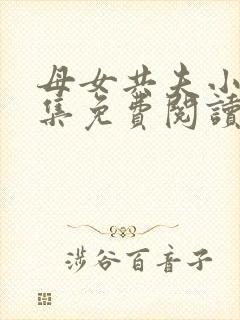 母女共夫小
集免費閱讀
涉谷百音子